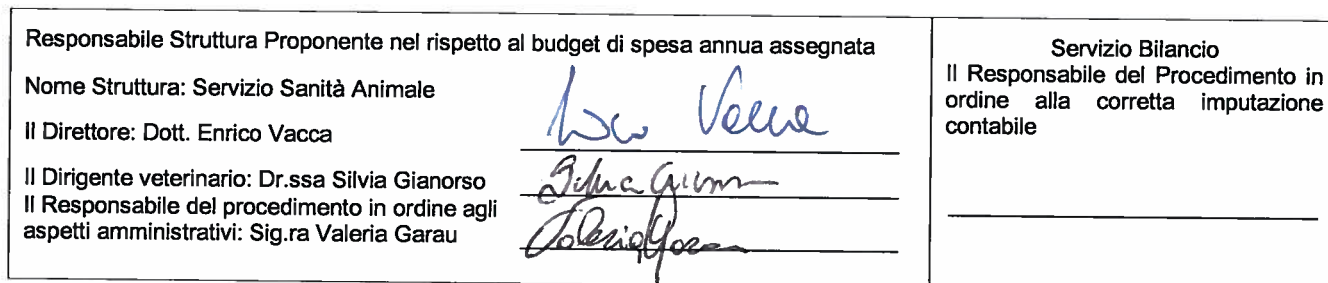 Responsabile Struttura Proponente nel rispetto al budget di spesa annua assegnata
Nome Struttura: Servizio Sanità Animale
Il Direttore: Dott. Enrico Vacca
Vacca
Il Dirigente veterinario: Dr.ssa Silvia Gianorso
Silvia
Il Responsabile del procedimento in ordine agli
aspetti amministrativi: Sig.ra Valeria Garau
Valeria Garau
Servizio Bilancio
Il Responsabile del Procedimento in
ordine alla corretta imputazione
contabile